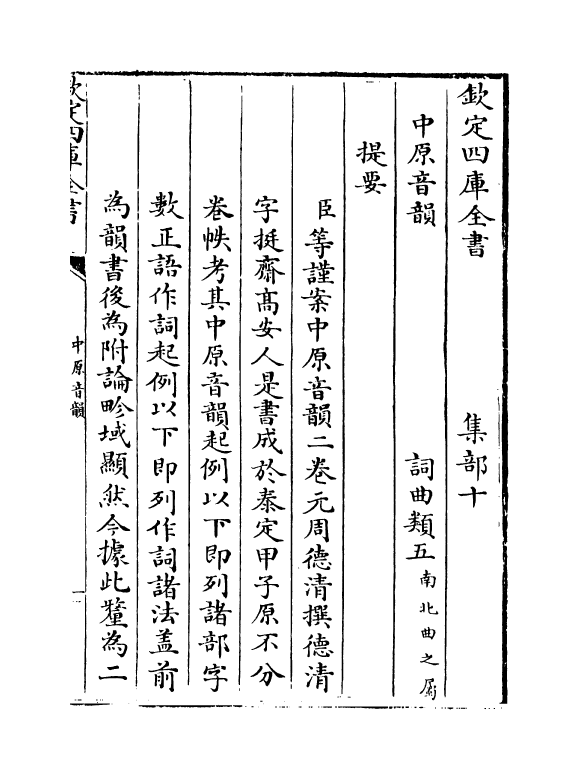 欽定四庫全書 集部十
中原音韻 詞曲類五南北曲之屬
提要
臣等謹案中原音韻二卷元周德清撰德清
字挺齋髙安人是書成於泰定甲子原不分
卷帙考其中原音韻起例以下即列諸部字
數正語作詞起例以下即列作詞諸法盖前
為韻書後為附論畛域顯然今據此釐為二
欽定四庫全書
中原音韻
一